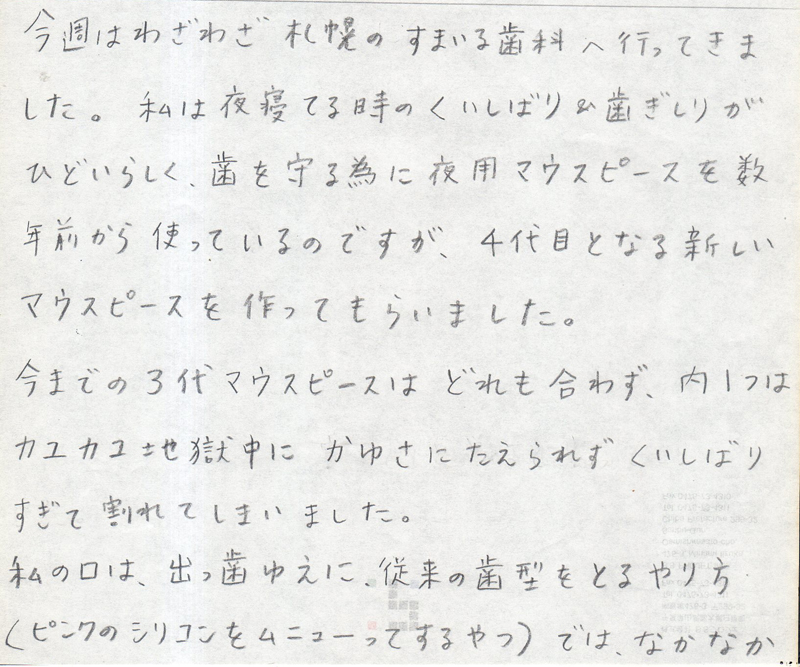 今週はわざわざ札幌のすまいる歯科へ行ってきま
した。私は夜寝てる時のくいしばり&歯ぎしりが
ひどいらしく、歯を守る為に夜用マウスピースを数
年前から使っているのですが、4代目となる新しい
マウスピースを作ってもらいました。
今までの3代マウスピースはどれも合わず、内1つは
カユカユ地獄中にかゆさにたえられずくいしばり
すぎて割れてしまいました。
私の口は、出っ歯ゆえに、従来の歯型をとるやり方
(ピンクのシリコンをムニューってするやつ)では、なかなか